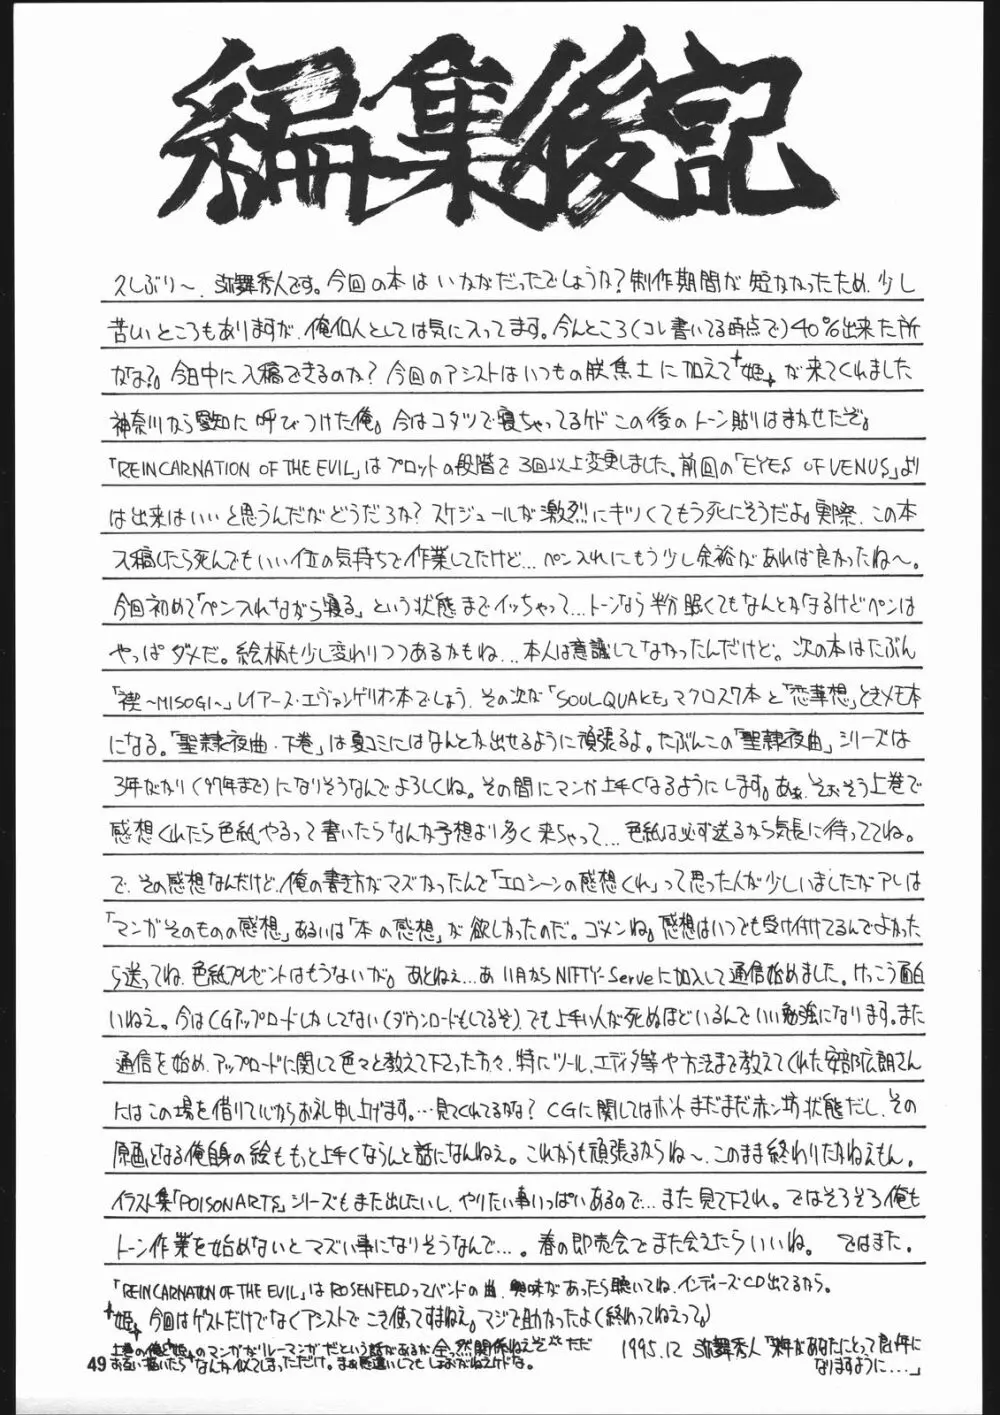 編集後記
久しぶり〜、弥舞秀人です。今回の本はいかがだったでしょうか?制作期間が短かかったため、少し
苦しいところもありますが、俺個人としては気に入ってます。今んところ(コレ書いてる時点で)40%出来た所
かな?。今日中に入稿できるのか?今回のアシストはいつもの朕焦土に加えて+姫+が来てくれました
神奈川から愛知に呼びつけた俺。今はコタツで寝ちゃってるケドこの後のトーン貼りはまかせたぞ。
「REINCARNATION OF THE EVIL」はプロットの段階で3回以上変更しました。前回の「EYES OF VENUS」より
は出来はいいと思うんだがどうだろか?スケジュールが激烈にキツくてもう死にそうだよ。実際、この本
入稿したら死んでもいい位の気持ちで作業してたけど…ペン入れにもう少し余裕があれば良かったね〜。
今回初めて「ペン入れながら寝る」という状態までイッちゃって…トーンなら半分眠くてもなんとかなるけどペンは
やっぱダメだ。絵柄も少し変わりつつあるかもね…本人は意識してなかったんだけど。次の本はたぶん
「禊〜MISOGI〜」レイアース・エヴァンゲリオン本でしょう。その次が「SOUL QUAKE」マクロス7本と「恋華想」ときメモ本
になる。「聖隷夜曲・下巻」は夏コミにはなんとか出せるように頑張るよ。たぶんこの「聖隷夜曲」シリーズは
3年がかり(97年まで)になりそうなんでよろしくね。その間にマンガ上手くなるようにします。あぁ、そおそう上巻で
感想くれたら色紙やるって書いたらなんか予想より多く来ちゃって…色紙は必ず送るから気長に待っててね。
で、その感想なんだけど、俺の書き方がマズかったんで「エロシーンの感想くれ」って思った人が少しいましたがアレは
「マンガそのものの感想」あるいは「本の感想」が欲しかったのだ。ゴメンね。感想はいつでも受け付けてるんでよかった
ら送ってね、色紙プレゼントはもうないが。あとねぇ…あ、11月からNIFTY-Serveに加入して通信始めました。けっこう面白
いねえ。今はCGアップロードしかしてない(ダウンロードもしてるぞ)、でも上手い人が死ぬほどいるんでいい勉強になります。また
通信を始め、アップロードに関して色々と教えて下さった方々、特にツール、エディタ等や方法まで教えてくれた安部広朗さん
にはこの場を借りて心からお礼申し上げます。…見てくれてるかな?CGに関してはホントまだまだ赤ン坊状態だし、その
原画となる俺自身の絵ももっと上手くならんと話になんねえ。これからも頑張るからね〜、このまま終わりたかねえもん。
イラスト集「POISON ARTS」シリーズもまた出したいし、やりたい事いっぱいあるので…また見て下され。ではそろそろ俺も
トーン作業を始めないとマズい事になりそうなんで…。春の即売会でまた会えたらいいね。ではまた。
「REINCARNATION OF THE EVIL」はROSENFELDってバンドの曲。興味があったら聴いてね、インディーズCD出てるから。
+姫+今回はゲストだけでなくアシストでこき使ってすまねえ。マジで助かったよ(終わってねえって)
上巻の俺と姫のマンガがリレーマンガだという話があるが全っ然関係ねえぞ ただ
お互い描いたらなんか似てしまっただけ。まぁ勘違いしてもしょおがねえけどな。
1995.12 弥舞秀人「来年があなたにとって良い年に
なりますように…」
49